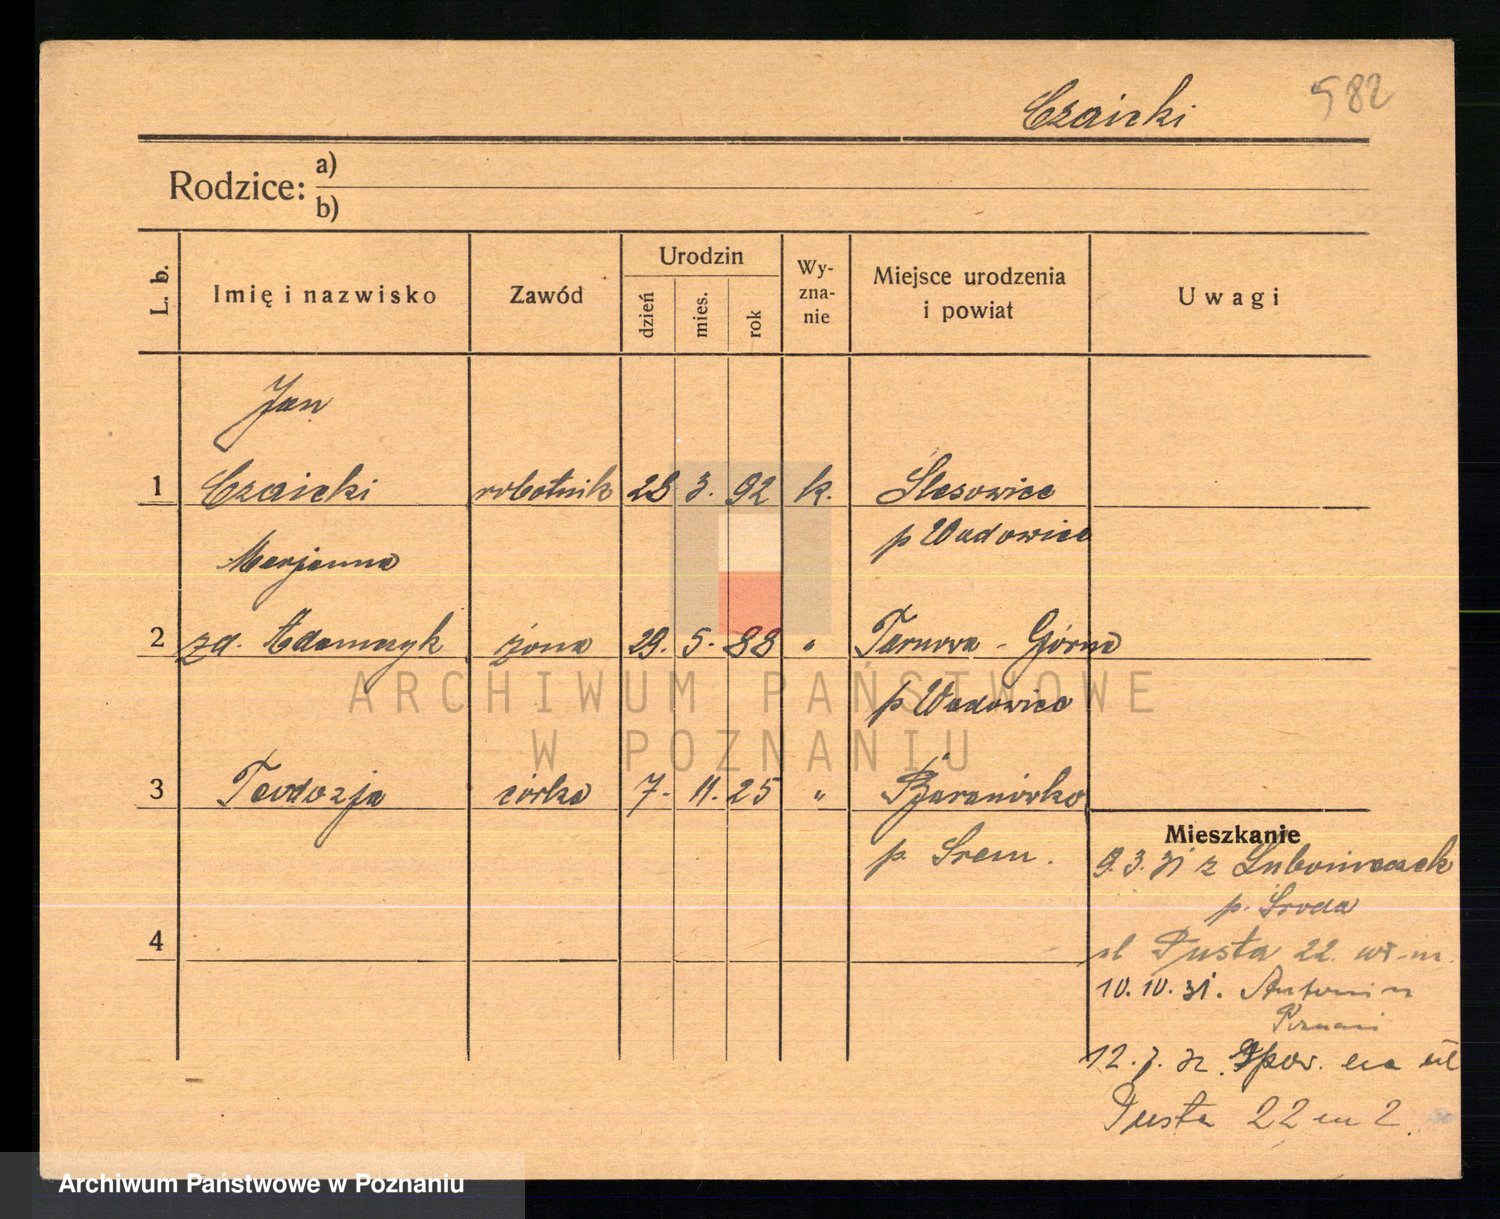 Czaicki 582
Rodzice: a)
b)
L. b. Imię i nazwisko Zawód Urodzin dzień mies. rok Wy-zna-nie Miejsce urodzenia i powiat Uwagi
Jan
1 Czaicki robotnik 28 3. 92 k. Slesowice
p Wadowice
Marjanna
2 zd. Adamczyk żona 29. 5. 88 " Tarnova - Górna
p Wadowice
3 Teodozja córka 7. 11. 25 " Baranówko
p. Srem.
Mieszkanie
9.3.31 z Lubonieczek
p. Sroda
ul Pusta 22. m.
4
10.10.31. Antonin
Poznań
12.7.32. Spow. na ul
Pusta 22 m 2.
ARCHIWUM PAŃSTWOWE
W POZNANIU
Archiwum Państwowe w Poznaniu